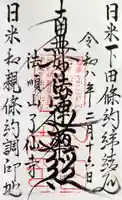 令和八年二月十六日
日米下田條約締結
南無妙法蓮華經
法順山了仙寺
日米和親條約調印地